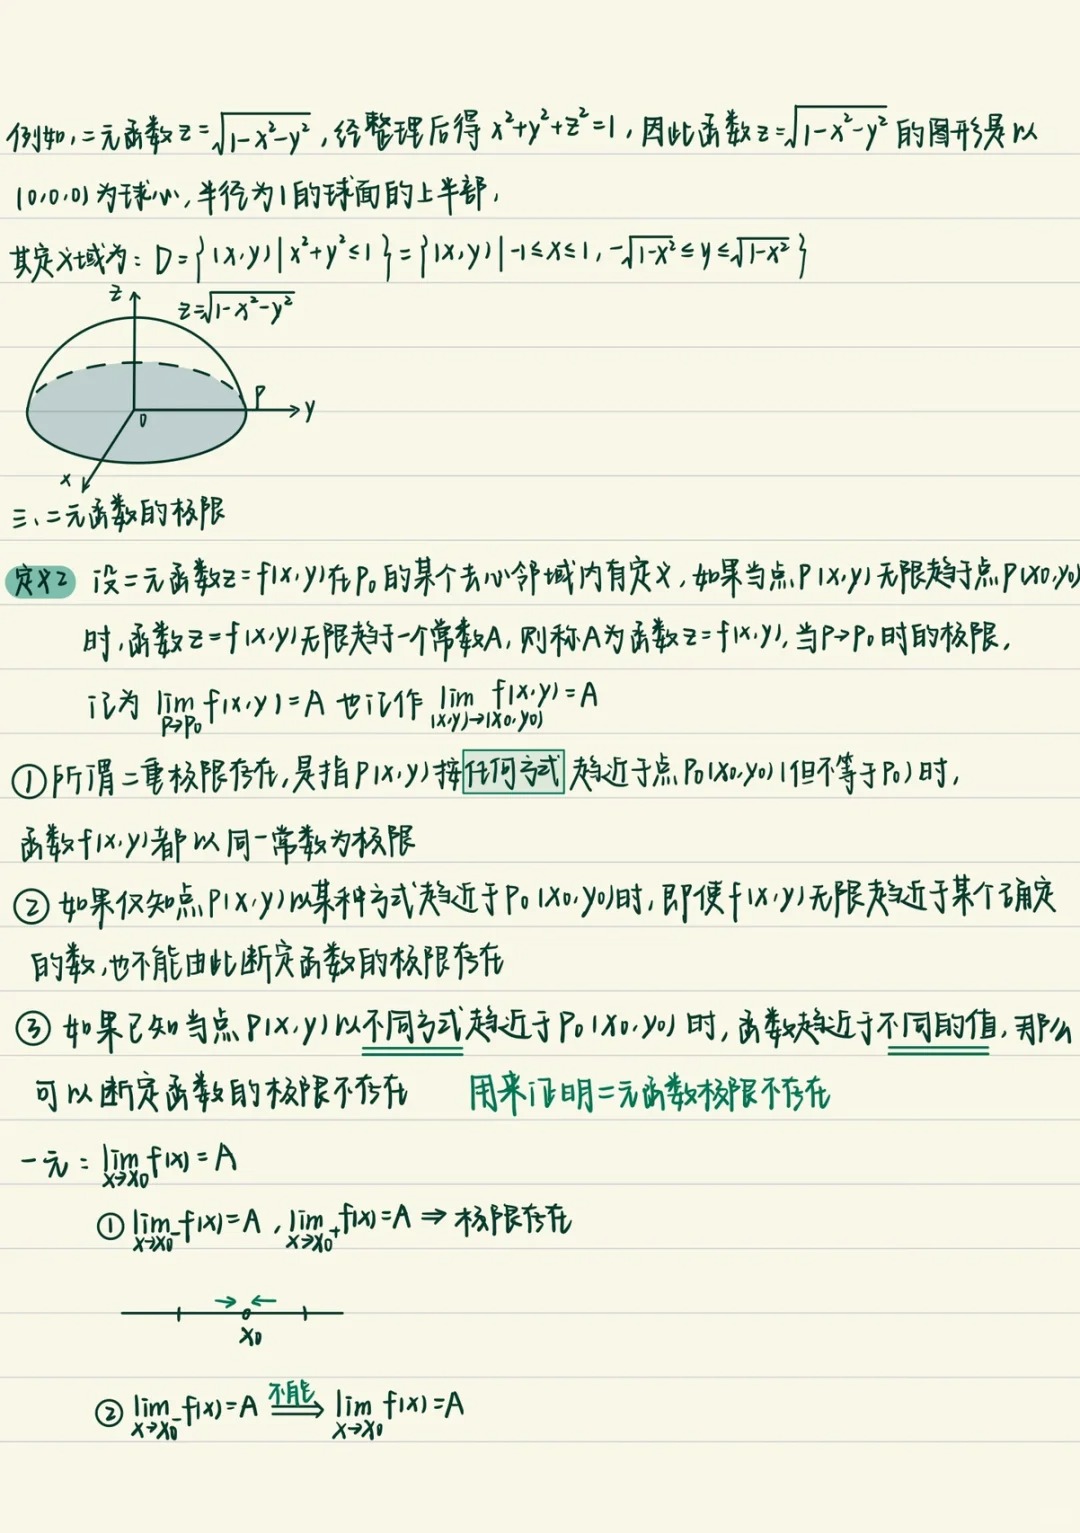 例如,二元函数z=√(1-x²-y²),经整理后得x²+y²+z²=1,因此函数z=√(1-x²-y²)的图形是以
(0,0,0)为球心,半径为1的球面的上半部,
其定义域为:D={(x,y)|x²+y²≤1}={(x,y)|-1≤x≤1,-√(1-x²)≤y≤√(1-x²)}
z
z=√(1-x²-y²)
P
y
0
x
三、二元函数的极限
定义2 设二元函数z=f(x,y)在P₀的某个去心邻域内有定义,如果当点P(x,y)无限趋于点P(x0,y0)
时,函数z=f(x,y)无限趋于一个常数A,则称A为函数z=f(x,y),当P→P₀时的极限,
记为 lim_{P→P₀} f(x,y)=A 也记作 lim_{(x,y)→(x0,y0)} f(x,y)=A
①所谓二重极限存在,是指P(x,y)按任何方式趋近于点P₀(x0,y0)(但不等于P₀)时,
函数f(x,y)都以同一常数为极限
②如果仅知点P(x,y)以某种方式趋近于P₀(x0,y0)时,即使f(x,y)无限趋近于某个确定
的数,也不能由此断定函数的极限存在
③如果已知当点P(x,y)以不同方式趋近于P₀(x0,y0)时,函数趋近于不同的值,那么
可以断定函数的极限不存在 用来证明二元函数极限不存在
一元:lim_{x→x0} f(x)=A
①lim_{x→x0⁻} f(x)=A,lim_{x→x0⁺} f(x)=A⇒极限存在
x0
②lim_{x→x0⁻} f(x)=A 不能⇒ lim_{x→x0} f(x)=A